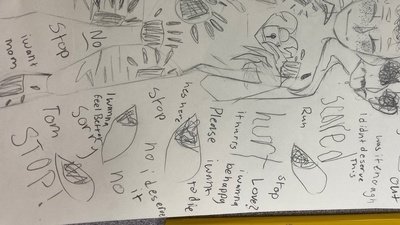 No
Stop
i want
mom
out
was it enough
I didnt deserve
this
SCARED
Run
hurt
stop
Love?
it hurts
i wanna
be happy
Please
i wanna
to die
hes here
Stop
no i deserve
it
I wanna
feel Better
Sorry
no
Tom
STOP!